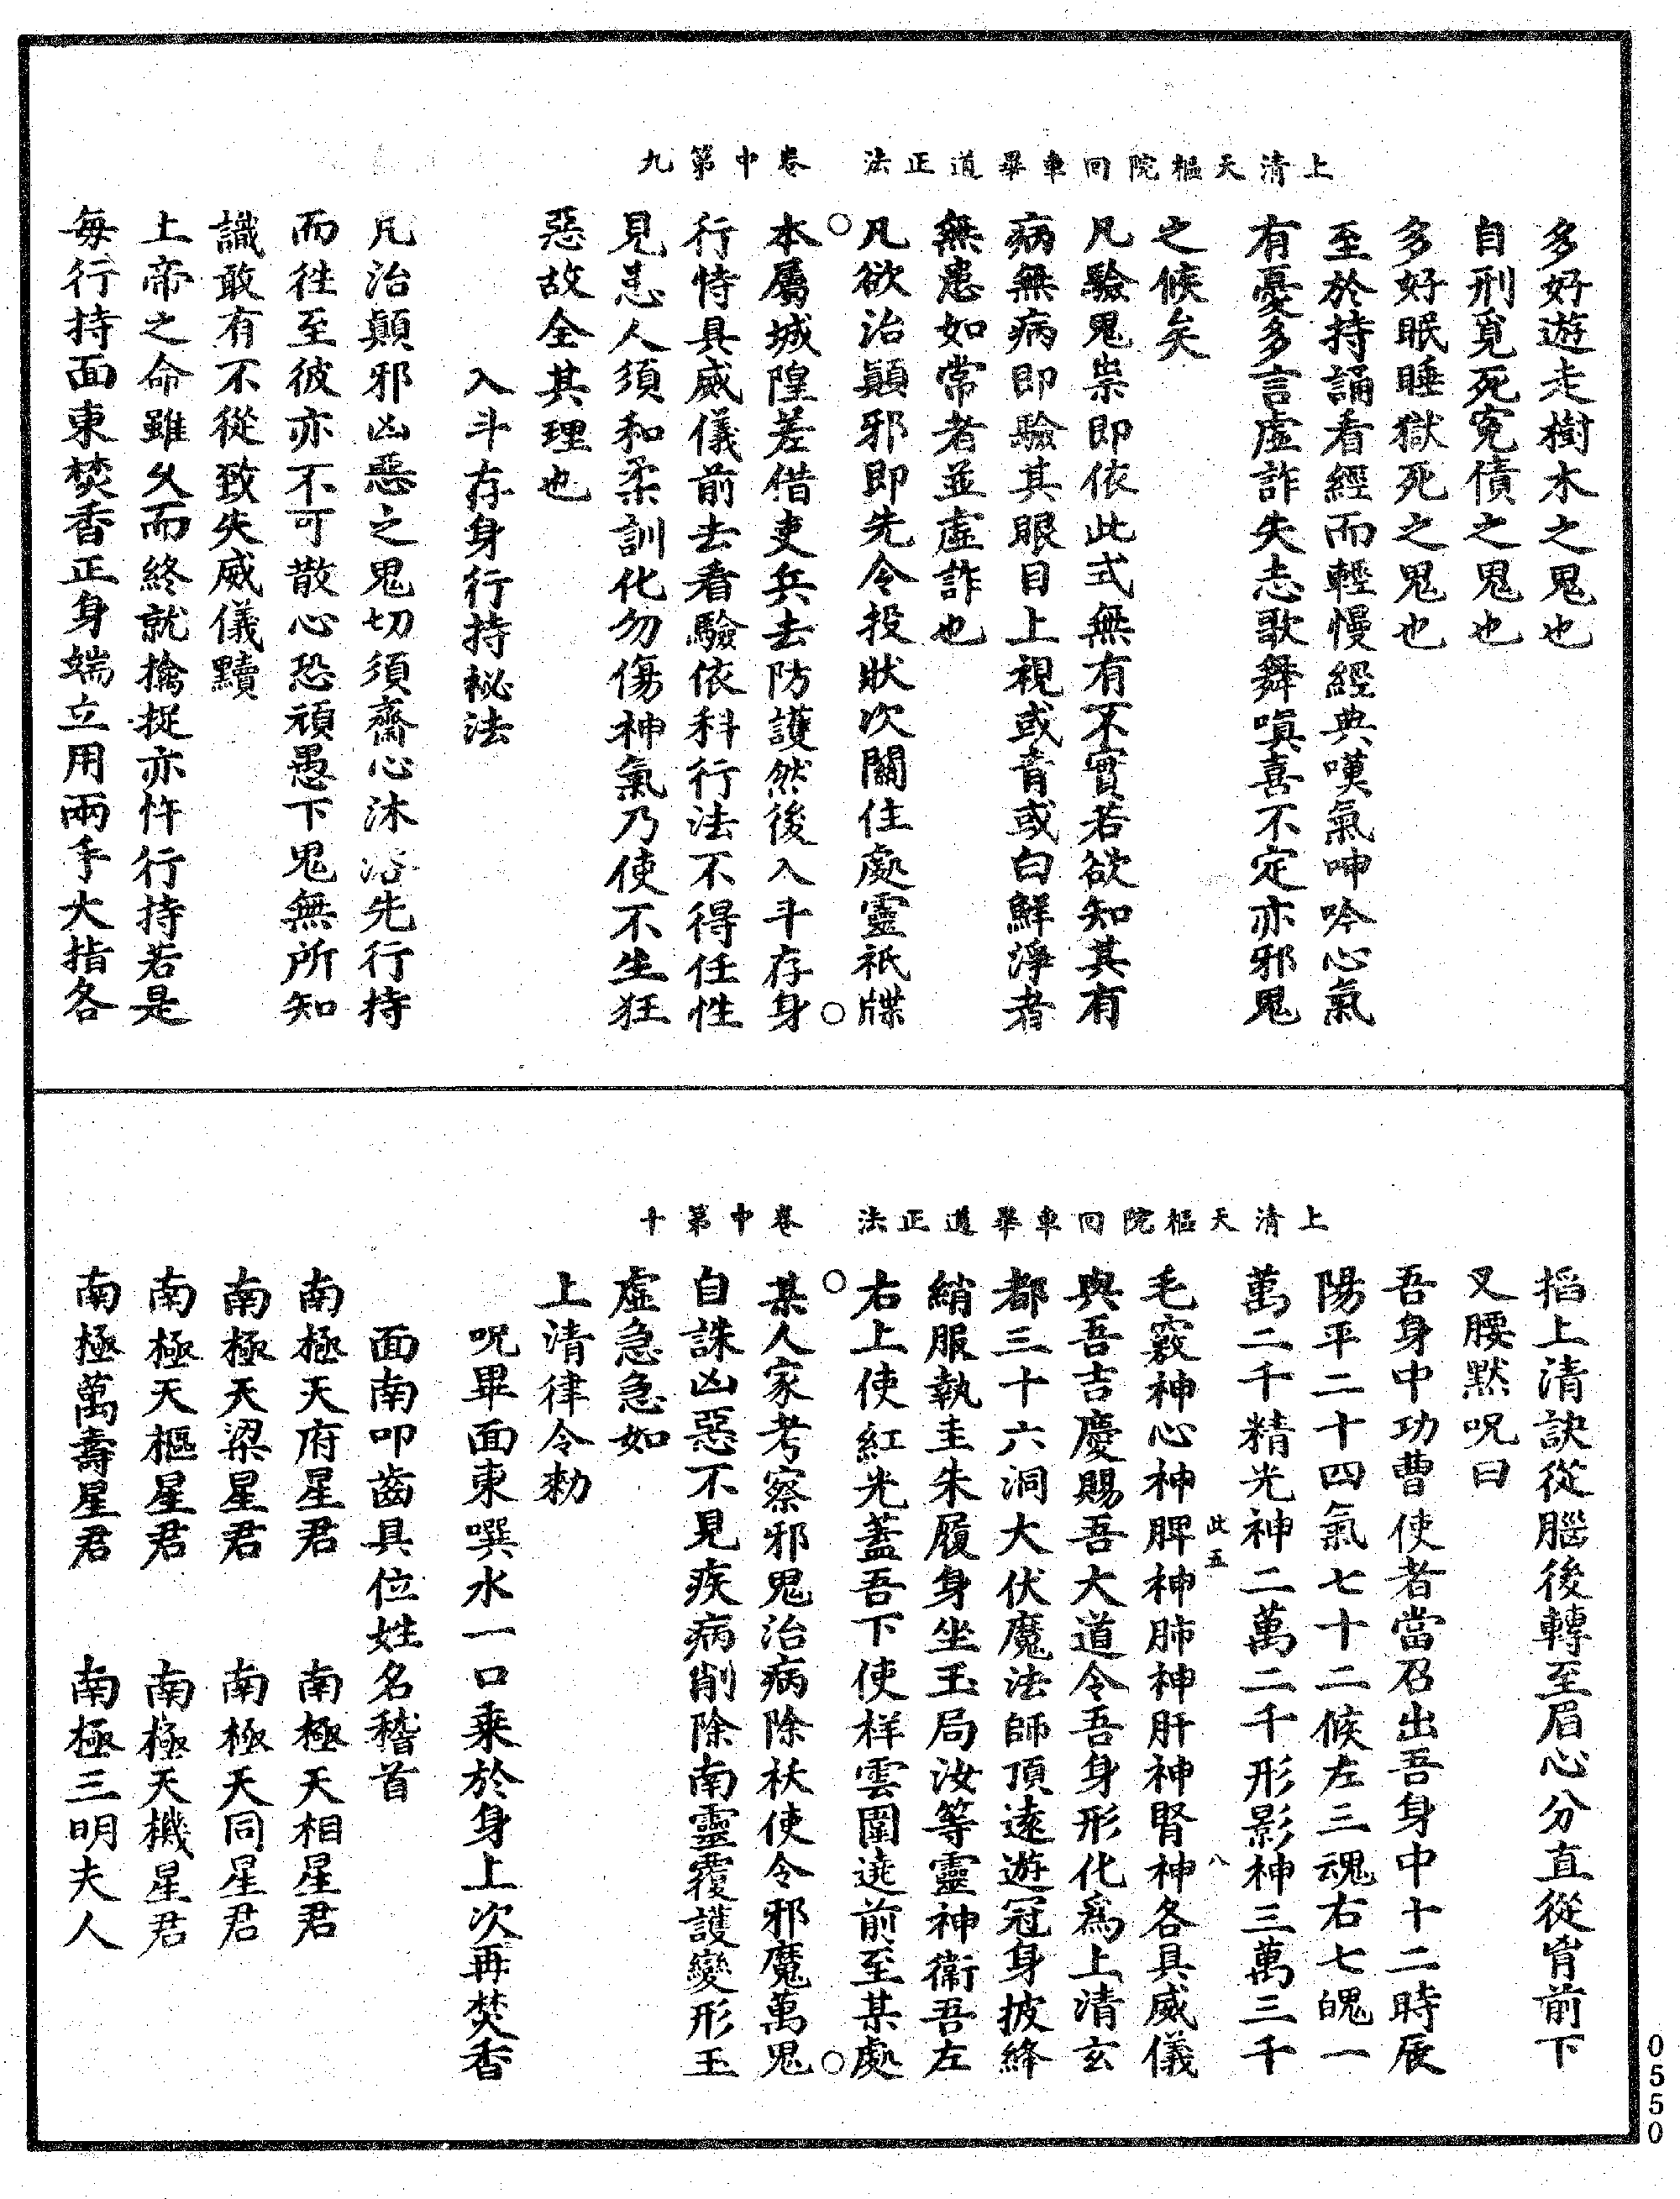 上清天樞院回車畢道正法　卷中第九
多好遊走樹木之鬼也
自刑覓死冤債之鬼也
多好眠睡獄死之鬼也
至於持誦看經而輕慢經典嘆氣呻吟心氣
有憂多言虛詐失志歌舞嗔喜不定亦邪鬼
之候矣
凡驗鬼祟即依此式無有不實若欲知其有
病無病即驗其眼目上視或青或白鮮淨者
無患如常者並虛詐也
凡欲治顛邪即先令投狀次關住處靈祇牒
本屬城隍差借吏兵去防護然後入斗存身
行恃具威儀前去看驗依科行法不得任性
見恚人須和柔訓化勿傷神氣乃使不生狂
惡故全其理也
入斗存身行持祕法
凡治顛邪凶惡之鬼切須齋心沐浴先行持
而往至彼亦不可散心恐頑愚下鬼無所知
識敢有不從致失威儀儀黷
上帝之命雖久而終就擒捉亦忤行持若是
每行持面東焚香正身端立用兩手大指各
上清天樞院回車畢道正法　卷中第十
搯上清訣從腦後轉至眉心分直從胷前下
叉腰默呪曰
吾身中功曹使者當召出吾身中十二時辰
陽平二十四氣七十二候左三魂右七魄一
萬二千精光神二萬二千形影神三萬三千
此五　八
毛竅神心神脾神肺神肝神腎神各具威儀
與吾吉慶賜吾大道令吾身形化爲上清玄
都三十六洞大伏魔法師頂遠遊冠身披絳
綃服執圭朱履身坐玉局汝等靈神衛吾左
右上使紅光蓋吾下使祥雲圍遶前至某處
某人家考察邪鬼治病除袄使令邪魔萬鬼
自誅凶惡不見疾病削除南靈覆護變形玉
虛急急如
上清律令勑
呪畢面東噀水一口乘於身上次再焚香
面南叩齒具位姓名稽首
南極天府星君　南極天相星君
南極天梁星君　南極天同星君
南極天樞星君　南極天機星君
南極萬壽星君　南極三明夫人
0550